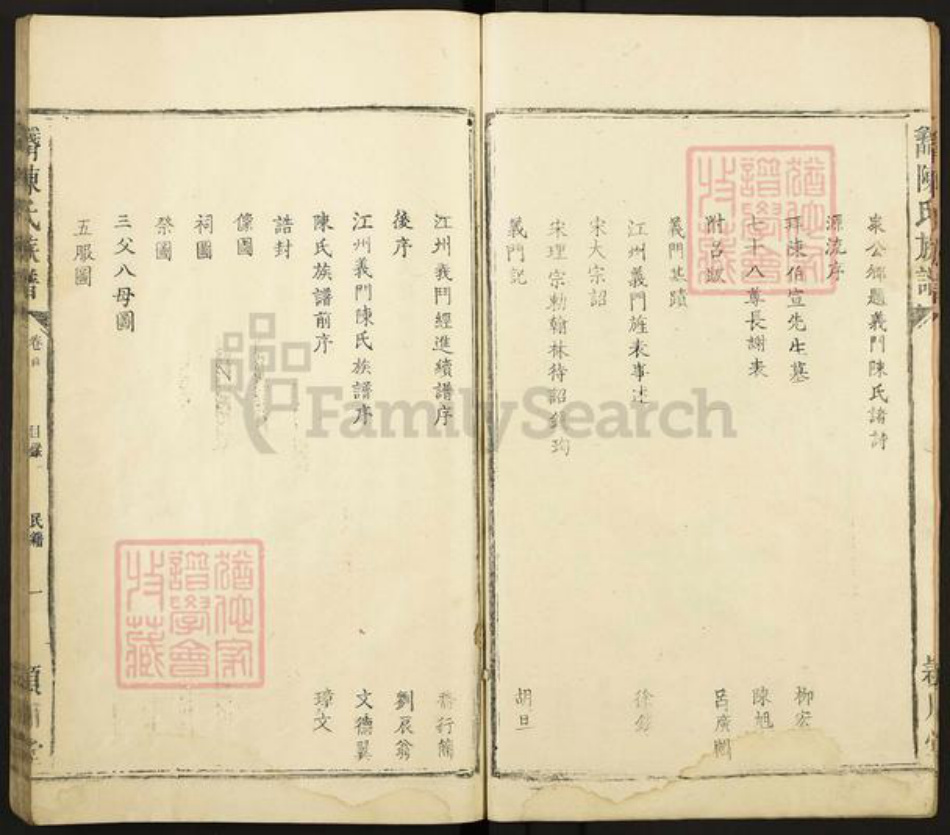 衆公卿題義門陳氏諸詩
源流序
拜陳伯宣先生墓 柳宏
七十八尊長謝表 陳旭
附呂 呂廣
義門基蹟
江州義門旌表事述 徐鍇
宋大宗詔
宋理宗勅翰林待詔 珣
義門記 胡旦
陳氏族譜
江州義門經進績譜序 行簡
後序 劉辰翁
江州義門陳氏族譜序 文德翼
陳氏族譜前序 璋文
誥封
像圖
祠圖
祭圖
三父八母圖
五服圖
陳氏族譜
卷首
目錄
民籍
一
猶他家
譜學會
收藏
猶他家
譜學會
收藏
FamilySearch